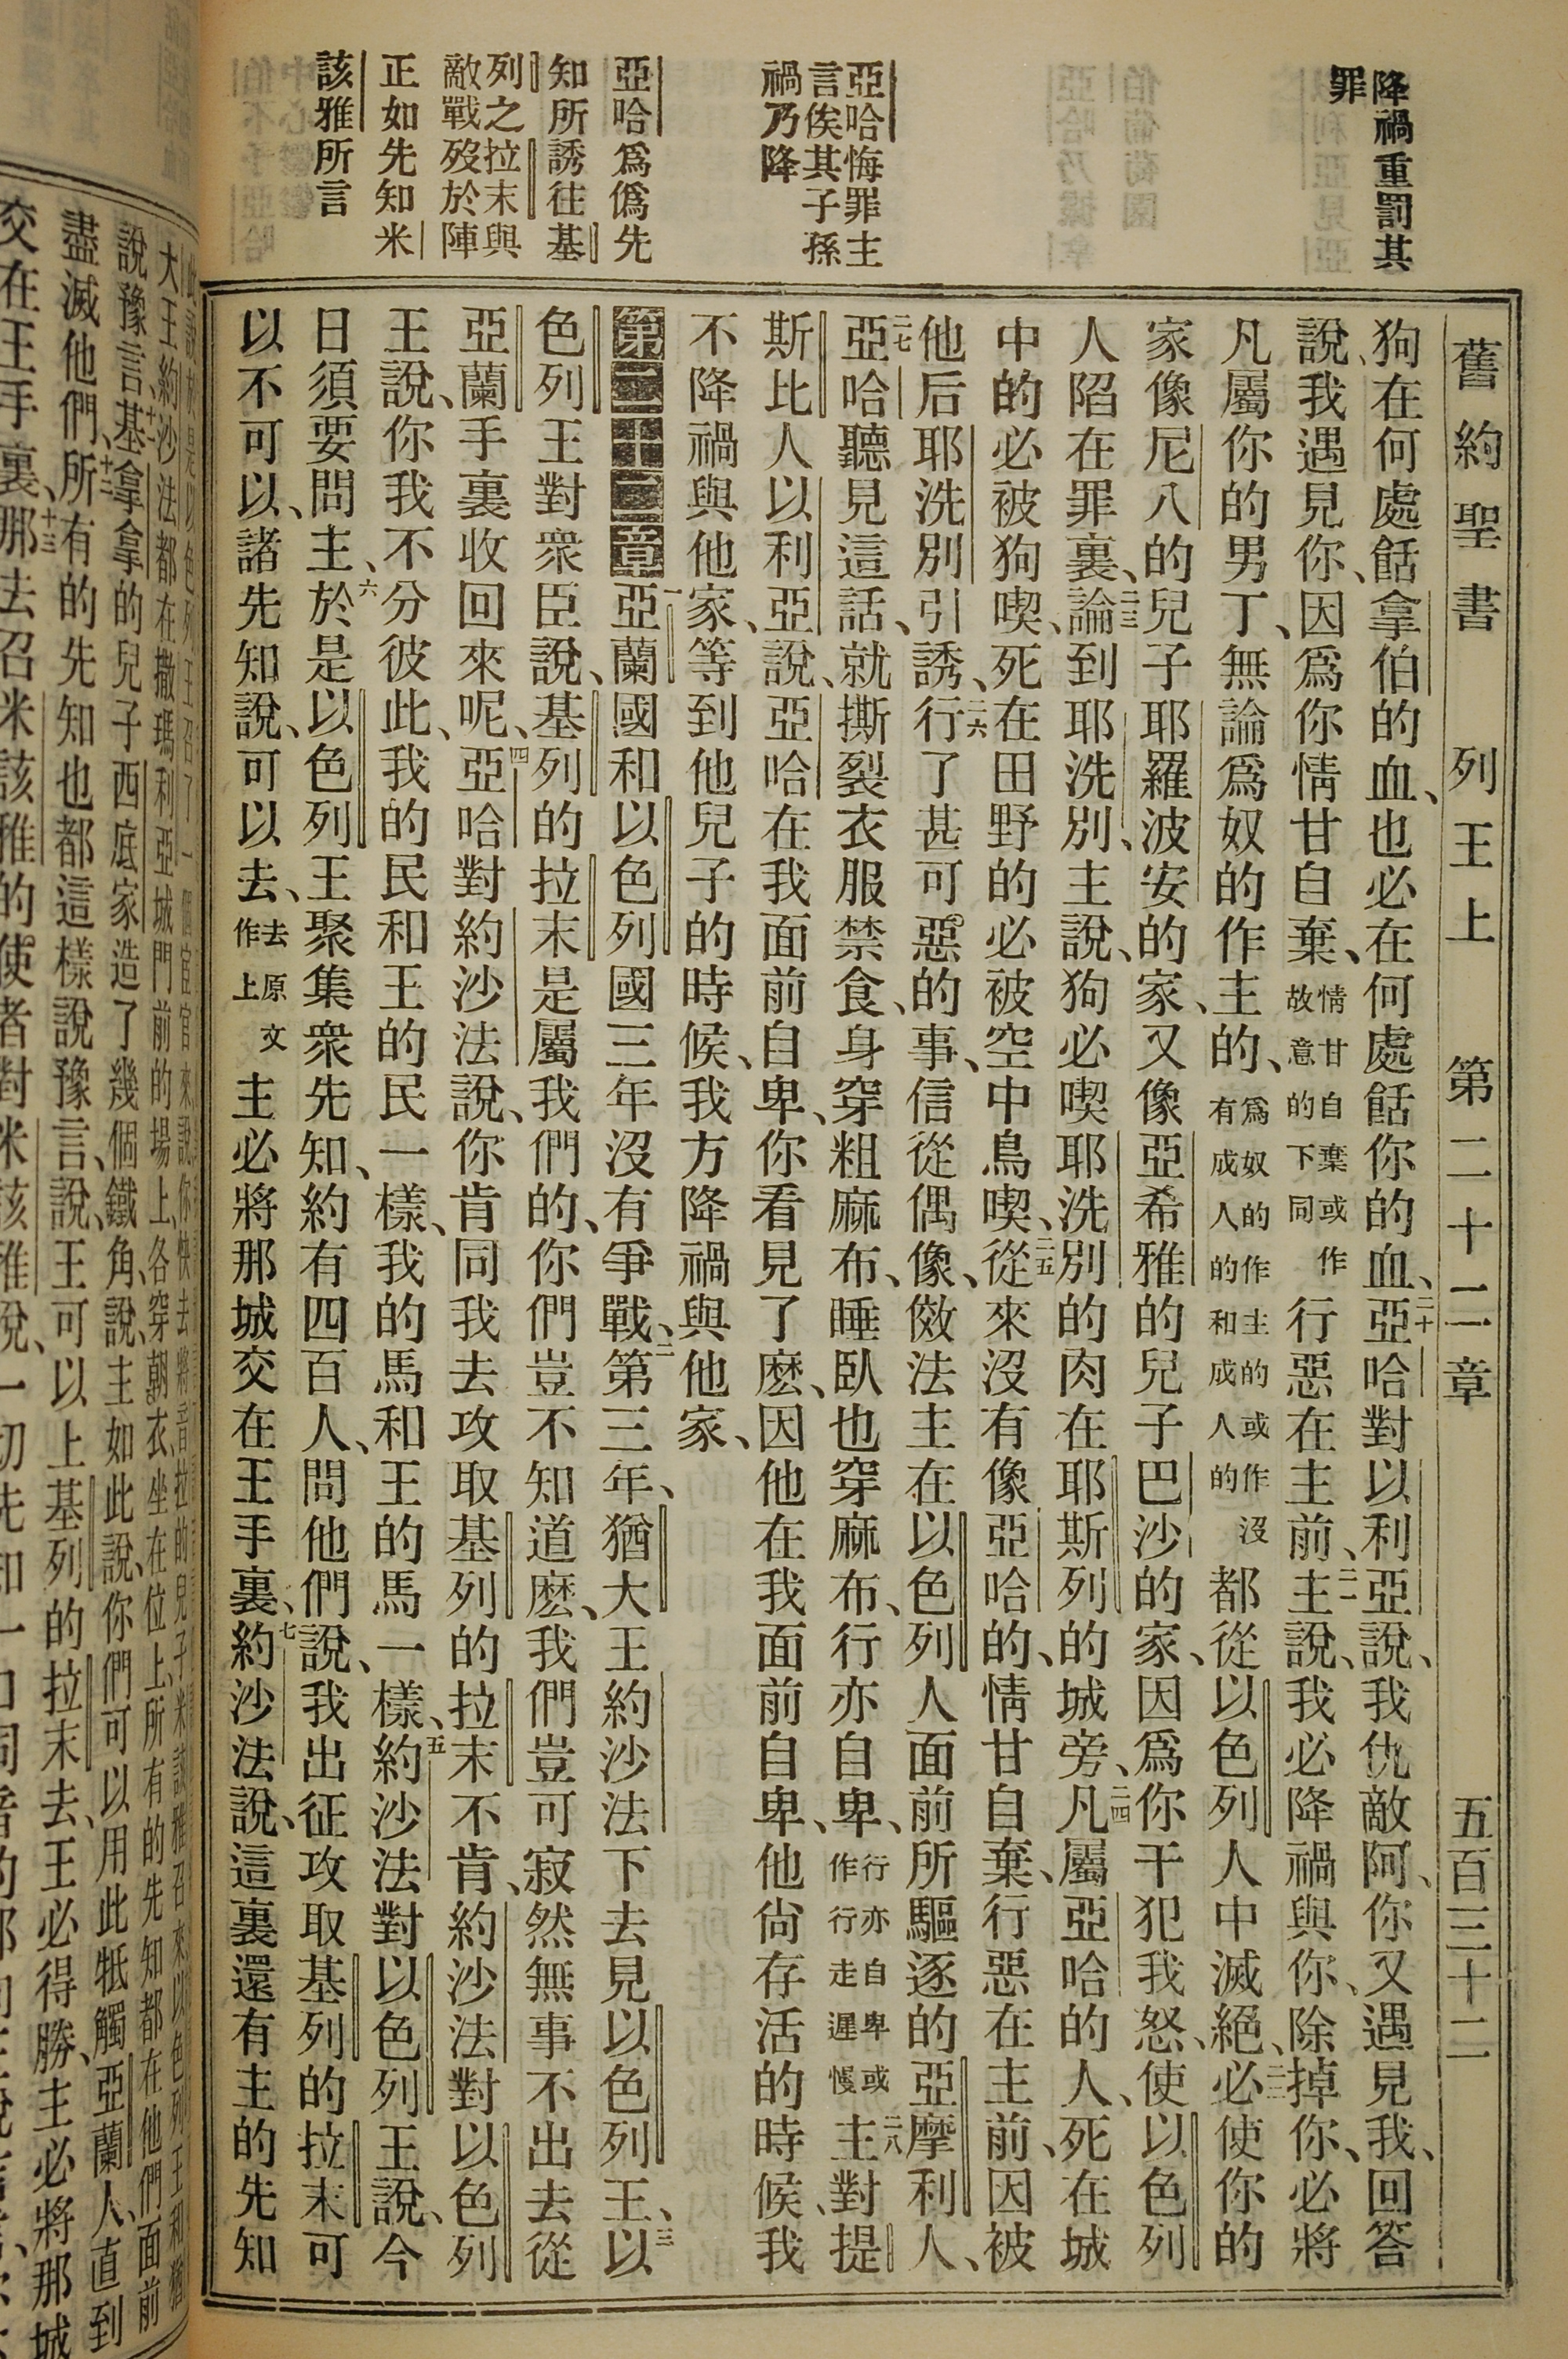 舊約聖書 列王上 第二十二章 五百三十二
降禍重罰其
罪
亞哈悔罪主
言俟其子孫
禍乃降
亞哈爲僞先
知所誘往基
列之拉末與
敵戰歿於陣
正如先知米
該雅所言
狗在何處餂拿伯的血、也必在何處餂你的血、二十亞哈對以利亞說、我仇敵阿、你又遇見我、回答
說、我遇見你、因爲你情甘自棄、情甘自棄或作故意的下同行惡在主前、二一主說、我必降禍與你、除掉你、必將
凡屬你的男丁、無論爲奴的作主的、爲奴的作主的或作沒有成人的和成人的都從以色列人中滅絕、二二必使你的
家像尼八的兒子耶羅波安的家、又像亞希雅的兒子巴沙的家、因爲你干犯我怒、使以色列
人陷在罪裏、二三論到耶洗別、主說、狗必喫耶洗別的肉在耶斯列的城旁、二四凡屬亞哈的人、死在城
中的必被狗喫、死在田野的必被空中鳥喫、二五從來沒有像亞哈的、情甘自棄、行惡在主前、因被
他后耶洗別引誘、二六行了甚可惡的事、信從偶像、傚法主在以色列人面前所驅逐的亞摩利人、
二七亞哈聽見這話、就撕裂衣服禁食、身穿粗麻布、睡臥也穿麻布、行亦自卑、行亦自卑或作行走遲慢二八主對提
斯比人以利亞說、亞哈在我面前自卑、你看見了麽、因他在我面前自卑、他尙存活的時候、我
不降禍與他家、等到他兒子的時候、我方降禍與他家、
第二十二章一亞蘭國和以色列國三年沒有爭戰、二第三年、猶大王約沙法下去見以色列王、三以
色列王對衆臣說、基列的拉末是屬我們的、你們豈不知道麽、我們豈可寂然無事不出去從
亞蘭手裏收回來呢、四亞哈對約沙法說、你肯同我去攻取基列的拉末不肯、約沙法對以色列
王說、你我不分彼此、我的民和王的民一樣、我的馬和王的馬一樣、五約沙法對以色列王說、今
日須要問主、六於是以色列王聚集衆先知、約有四百人、問他們說、我出征攻取基列的拉末可
以不可以、諸先知說、可以去、去原文作上主必將那城交在王手裏、七約沙法說、這裏還有主的先知
大王約沙法都在撒瑪利亞城門前的場上、各穿朝衣、坐在位上、所有的先知都在他們面前
說豫言、十一基拿拿的兒子西底家造了幾個鐵角、說、主如此說、你們可以用此牴觸亞蘭人、直到
盡滅他們、十二所有的先知也都這樣說豫言、說、王可以上基列的拉末去、王必得勝、主必將那城
交在王手裏、十三那去召米該雅的使者對米該雅說、